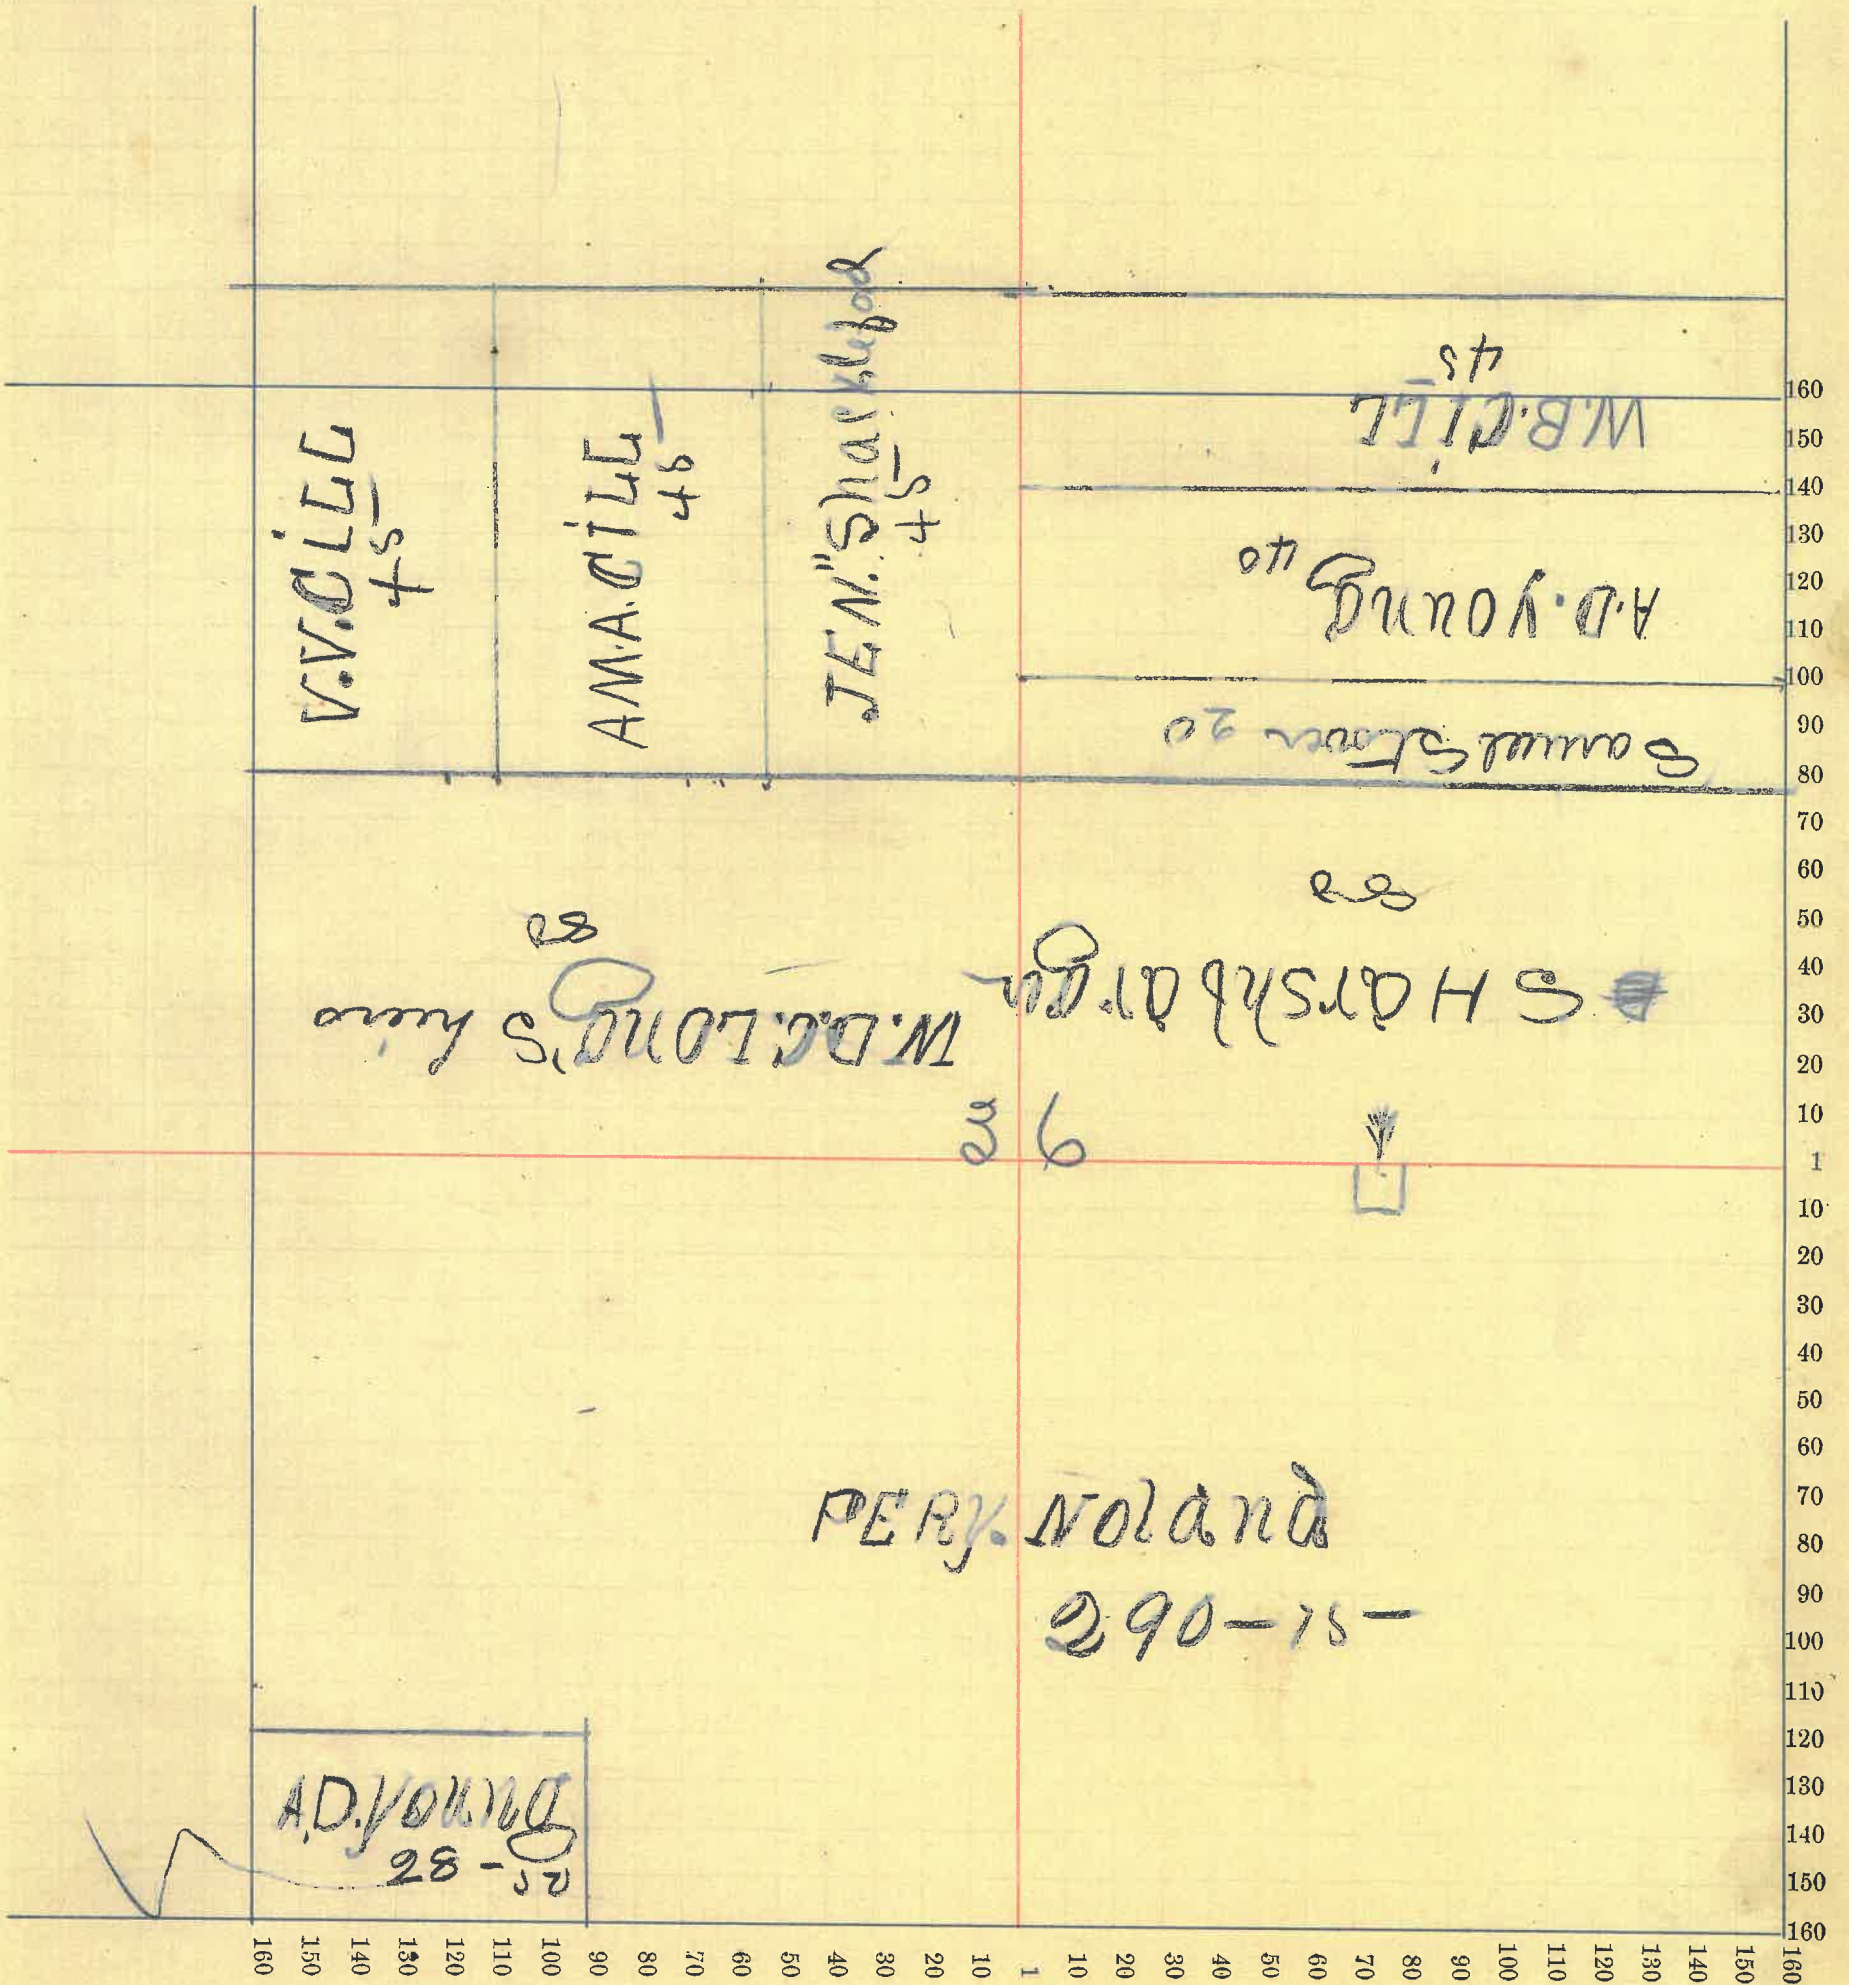 V.V. CILL
45
AM.A. CILL
45
JEN."
45
W.B. CILL
45
A.D. YOUNG 40
Samuel Stover 20
S Harshbarger
80
W.D.C. LONG'S heirs
80
36
PERY. Noland
290-15-
A.D. YOUNG
28-50
160
150
140
130
120
110
100
90
80
70
60
50
40
30
20
10
1
10
20
30
40
50
60
70
80
90
100
110
120
130
140
150
160
160 150 140 130 120 110 100 90 80 70 60 50 40 30 20 10 1 10 20 30 40 50 60 70 80 90 100 110 120 130 140 150 160